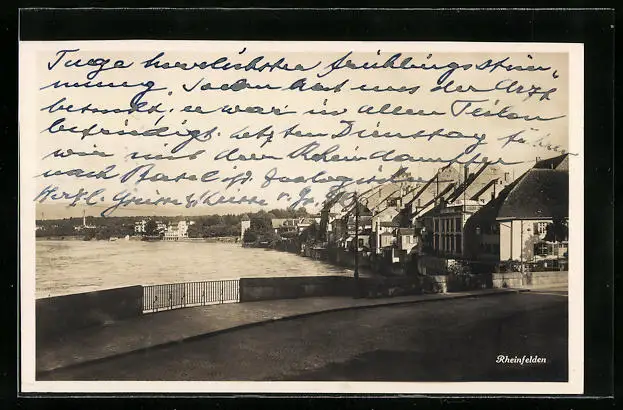 Tage herrlichster Frühlingsstim-
mung. Soeben hat uns der Arzt
besucht, er war in allen Teilen
befriedigt. Letzten Dienstag fuhren
wir mit dem Rheindampfer
nach Basel
Herzl. Grüsse & Küsse v.
Rheinfelden